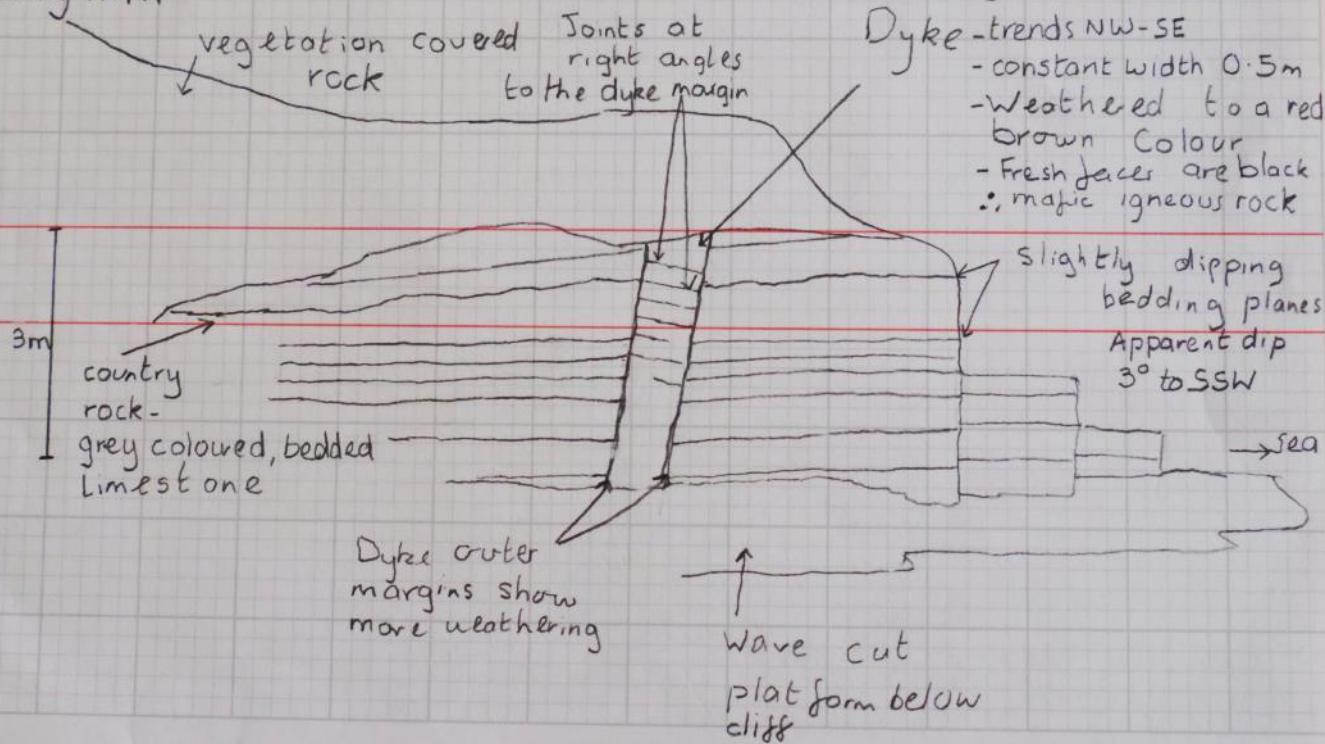 vegetation covered
rock
Joints at
right angles
to the dyke margin
Dyke - trends NW-SE
- constant width 0.5m
- Weathered to a red
brown Colour
- Fresh faces are black
∴ mafic igneous rock
Slightly dipping
bedding planes
Apparent dip
3° to SSW
3m
country
rock-
grey coloured, bedded
Limestone
→ sea
Dyke outer
margins show
more weathering
Wave cut
platform below
cliff